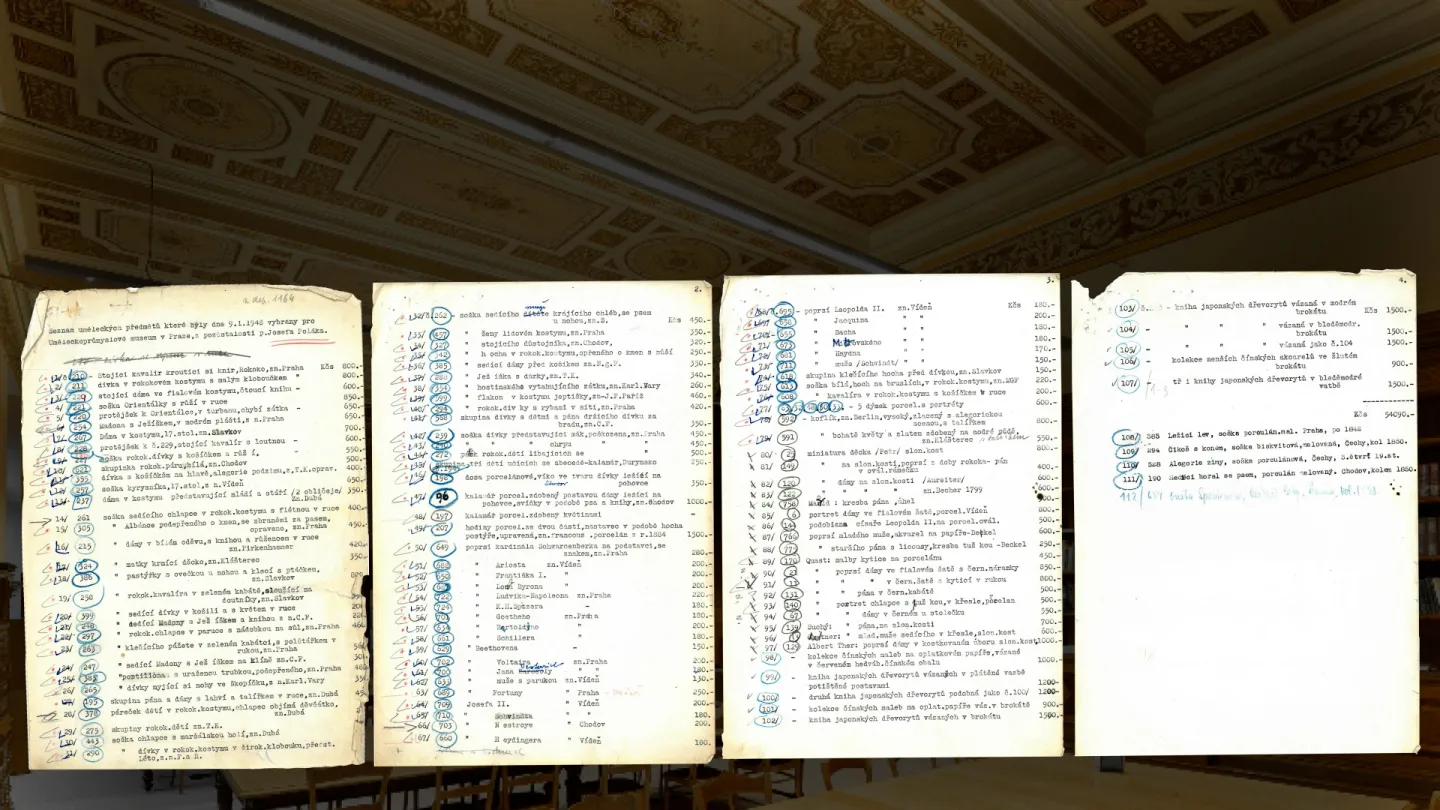 a dep. 1164
Seznam uměleckých předmětů které byly dne 9.1.1948 vybrány pro
Uměleckoprůmyslové museum v Praze, z pozůstalosti p. Josefa Poláka.
1/ 210 - Stojící kavalír kroutící si knír, Rokoko, zn. Praha Kčs 800.-
2/ 211 dívka v rokokovém kostymu s malým kloboučkem " 800.-
stojící dáma ve fialovém kostymu, čtoucí knihu - 600.-
4/ 221 soška Orientálky s růží v ruce 850.-
protějšek k Orientálce, v turbanu, chybí zátka - 650.-
254 Madona s Ježíškem, v modrém plášti, z n. Praha 650.-
Dáma v kostymu, 17. stol. zn. Slavkov 700.-
protějšek k č. 229, stojící kavalír s loutnou - 600.-
soška rokok. dívky s košíčkem a růží,
skupinka rokok. páru, bílá, zn. Chodov
dívka s košíčkem na hlavě, alegorie podzimu, z.T.K. oprav. 400.-
257 soška kyrysníka, 17. stol, z n. Vídeň
dáma v kostymu představující mládí a stáří /2 obličeje/ 350.-
zn. Dubá
14/ 261 soška sedícího chlapce v rokok. kostymu s flétnou v ruce 400.-
15/ 305 " Albánce podepřeného o kmen, se zbraněmi za pasem,
opraveno, zn. Praha 450.-
16/ 215 " dámy v bílém oděvu, s knihou a růžencem v ruce
zn. Pirkenhammer
17/ 324 " matky krmící děcko, zn. Klášterec 350.-
18/ 386 " pastýřky s ovečkou u nohou a klecí s ptáčkem,
zn. Slavkov
19/ 250 " rokok. kavalíra v zeleném kabátě,
zn. Slavkov
20/ 399 " sedící dívky v košili a s květem v ruce
" sedící Madony s Ježíškem a knihou z n.C.F.
22/ 297 " rokok. chlapce v paruce s nádobkou na sůl, zn. Praha
23/ 263 " klečícího pážete v zeleném kabátci, s polštářkem v
rukou, zn. Praha
24/ 247 " sedící Madony s Ježíškem na klíně zn.C.F.
" postiliona s uraženou trubkou, podepřeného, zn. Praha
26/ 265 " dívky myjící si nohy ve škopíčku, z n. Karl. Vary 350.-
27/ 195 skupina pána a dámy s lahví a talířkem v ruce, zn. Dubá
28/ 378 páreček dětí v rokok. kostymu, chlapec objímá děvčátko,
zn. Dubá
29/ 275 skupiny rokok. dětí zn.T.K.
30/ 443 soška chlapce s maršálskou holí, zn. Dubá
31/ 290 " dívky v rokok. kostymu v širok. klobouku, předst.
Léto, z.n.F. a R.
2.
32/ 262 - soška sedícího muže krájícího chléb, se psem
u nohou, zn. S. Kčs 450.-
33/ 457 " ženy lidovém kostymu, zn. Praha 350.-
34/ 327 " stojícího důstojníka, zn. Chodov, 320.-
35/ 342 " h ocha v rokok. kostymu, opřeného o kmen s růží 250.-
36/ 385 " sedící dámy před košíkem zn. N.g.F. 350.-
37/ " Jež íška s dárky, zn.T.K. 340.-
38/ " hostinského vytahujícího zátku, zn. Karl. Vary 260.-
" flakon v kostymu jeptišky, zn-J.P. Paříž 460.-
40/ 294 " rokok. dív ky s rybami v síti, zn. Praha 420.-
skupina dívky s dětmi a pána držícího dívku za
bradu, zn.C.F. 350.-
42/ 239 soška dívky představující zák, poškozena, zn. Praha 450.-
" chrpu " 450.-
pár rokok. dětí líbajících se " 500.-
skupina tří dětí učících se abecedě-kalamář, Durynsko 250.-
198 dosa porcelánová, víko ve tvaru dívky ležící na
pohovce 350.-
47/ 96 kalamář porcel. zdobený postavou dámy ležící na
pohovce, svíčky v podobě psa a knihy, zn. Chodov 1000.-
48/ 197 kalamář zdobený květinami -
49/ 207 hodiny porcel. ze dvou částí, nástavec v podobě hocha
postýře, upravená, zn. francous .porcelán z r.1884 1500.-
50/ 649 poprsí kardinála Schwarcenberka na podstavci, se
znakem, zn. Praha 280.-
51/ 688 " Ariosta zn. Vídeň 200.-
52/ 650 " Františka I. " 200.-
53/ " Lord Byrona " 200.-
54/ 722 " Ludvíka-Napoleona zn. Praha 200.-
55/ 724 " K.H. Spizera - 180.-
56/ 701 " Goetheho zn. Praha 180.-
57/ 654 " " 180.-
58/ 661 " Schillera " 180.-
59/ 629 " Beethovena - 150.-
60/ 702 " Voltaira zn. Praha 200.-
" Jana " " 200.-
62/ 633 " muže s parukou zn. Vídeň 150.-
63/ 689 " Fortuny " Praha 250.-
64/ 709 Josefa II. " Vídeň 200.-
65/ 710 " " 180.-
66/ 703 " N estroye " Chodov 200.-
67/ 660 " H eydingera " Vídeň 180.-
3.
68/ 695 - poprsí Leopolda II. zn. Vídeň Kčs 180.-
656 " Jacquina " 200.-
655 " Bacha " 180.-
673 " " 170.-
681 " Haydna " 150.-
711 " muže /Schwindt/ " 150.-
618 skupina klečícího hocha před dívkou, zn. Slavkov 200.-
613 soška bílá, hoch na bruslích, v rokok. kostymu, zn. MGF 220.-
608 " kavalíra v rokok. kostymu s košíčkem v ruce 200.-
77/ - 5 dýmek porcel. s portréty
592 - koflík, zn. Berlin, vysoký, zlacený s alegorickou
scenou, s talířkem 800.-
79/ 591 " bohatě květy a zlatem zdobený na modré půdě,
zn. Klášterec 550.-
80/ miniatura děcka /Petr/ slon. kost
81/ 149 " na slon. kosti, poprsí z doby rokoka- pán
v ovál. rámečku 400.-
82/ 120 " dámy na slon. kosti /Aureiter/ 600.-
83/ " " zn. Becher 1799
84/ 758 kresba pána, úhel
85/ 6 portret dámy ve fialovém šatě, porcel. Vídeň 800.-
86/ 144 podobizna císaře Leopolda II, na porcel. ovál. 500.-
87/ 769 poprsí mladého muže, akvarel na papíře-Deckel 500.-
88/ 771 " staršího pána s licousy, kresba tuž kou -Deckel 450.-
89/ 170 Quast: malby kytice na porcelánu 450.-
90/ 21 " poprsí dámy ve fialovém šatě s čern. náramky 850.-
91/ " " v čern. šatě s kyticí v rukou 800.-
92/ 131 " " pána v čern. kabátě 500.-
93/ 140 " portret chlapce s tuž kou, v křesle, porcelan 500.-
94/ " " dámy v černém u stolečku 550.-
95/ Suchý: " pána, na slon. kosti 700.-
96/ " mlad. muže sedícího v křesle, slon. kost 600.-
97/ 129 Albert Ther: poprsí dámy v kostkovaném úboru slon. kost. 1000.-
98/ - kolekce čínských maleb na oplatkovém papíře, vázané
v červeném hedváb. čínském obalu 1000.-
99/ - kniha japonských dřevorytů vázaných v plátěné vazbě
potištěné postavami 1200.-
100/ - druhá kniha japonských dřevorytů podobná jako č.100/ 1200.-
101/ - kolekce čínských maleb na oplat. papíře váz. v brokátě 900.-
102/ - kniha japonských dřevorytů vázaných v brokátu 1500.-
4.
103/ - kniha japonských dřevorytů vázaná v modrém
brokátu Kčs 1500.-
104/ - " " " vázaná v bleděmodr.
brokátu 1500.-
105/ - " " " vázaná jako č.104 1500.-
106/ - kolekce menších čínských akvarelů ve žlutém
brokátu 900.-
107/ tř i knihy japonských dřevorytů v bleděmodré
vazbě 1500.-
Kčs 54090.-
108/ 385 Ležící lev, soška porculán. mal. Praha, po 1848
109/ 294 Čikoš s koněm, soška biskvitová, malovaná, Čechy, kol 1850.
110/ 528 Alegorie zimy, soška porculánová, Čechy, 3. čtvrť 19. st.
111/ 190 Sedící horal se psem, porculán malovaný. Chodov, kolem 1850.